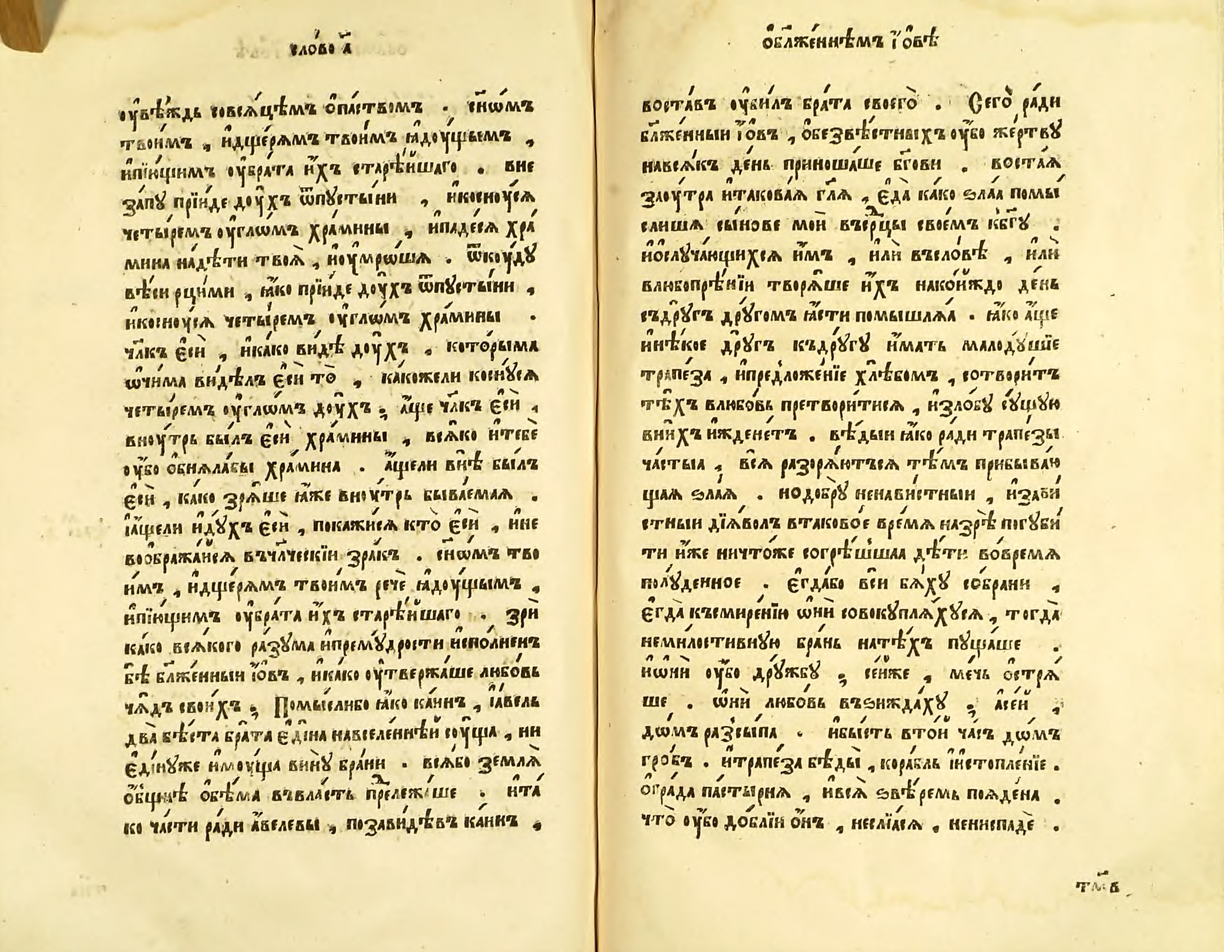 сло́во а҃
оу҆вѣ́ждь совся́цѣмъ ѻ҆па́ствомъ . сн҃ѡ́мъ
твои́мъ , и҆дще́рямъ твои́мъ ꙗ҆доу́щымъ ,
и҆пїю́щимъ оу҆бра́та и҆́хъ старѣ́йшаго . вне
за́пꙋ прїи́де доу́хъ ѿпꙋсты́ни , и҆косноу́ся
четы́ремъ оу҆гло́мъ хра́мины , и҆паде́ся хра́
мина надѣ́ти твоя̀ , и҆оу҆мро́шѧ . ѿкоу́дꙋ
вѣ́си рцы́ми , ꙗ҆́ко прїи́де доу́хъ ѿпꙋсты́ни ,
и҆косноу́ся четы́ремъ оу҆гло́мъ хра́мины .
чл҃къ є҆сѝ , и҆ка́ко ви́дѣ доу́хъ , кото́рыма
ѻ҆чи́ма ви́дѣлъ є҆сѝ то̀ , ка́кожели коснꙋ́ся
четы́ремъ оу҆гло́мъ доу́хъ ; а҆́ще чл҃къ є҆сѝ ,
вноу́трь бы́лъ є҆сѝ хра́мины , вся́ко и҆тебѐ
оу҆́бо ѻ҆бня́лабы хра́мина . а҆́щели внѣ̀ бы́лъ
є҆сѝ , ка́ко зря́ше ꙗ҆́же вноу́трь быва́емая .
і҆а҆́щели и҆дꙋ́хъ є҆сѝ , покажи́ся кто̀ є҆сѝ , и҆не
воѻбража́йся въчл҃ческїи зра́къ . сн҃ѡ́мъ тво
и́мъ , и҆дще́рямъ твои́мъ речѐ ꙗ҆доу́щымъ ,
и҆пїю́щимъ оу҆бра́та и҆́хъ старѣ́йшаго . зрѝ
ка́ко вся́кого ра́зꙋма и҆премꙋ́дрости и҆спо́лненъ
бѣ̀ бл҃же́нныи і҆́ѻвъ , и҆ка́ко оу҆твержа́ше любо́вь
чя́дъ свои́хъ ; Помы́слибо ꙗ҆́ко ка́инъ , і҆а҆́вель
два̀ бѣ́ста бра́та є҆ди́на навселе́ннѣй соу́ща , ни
є҆ди́нꙋже и҆моу́ща винꙋ̀ бра́ни . вся́бо земля̀
ѻ҆́бщнѣ ѻ҆бѣ́ма въвла́сть прележа́ше . и҆та́
ко ча́сти ра́ди а҆́велевы , позави́дѣвъ ка́инъ ,
ѻ҆бл҃же́ннѣмъ і҆́ѻвѣ
воста́въ оу҆би́лъ бра́та своего̀ . Сего̀ ра́ди
бл҃же́нныи і҆́ѻвъ , ѻ҆безвѣ́стныхъ оу҆́бо же́ртвꙋ
нався́къ де́нь приноша́ше бг҃ови . воста́я
заоу́тра и҆такова́я гл҃я , є҆да̀ ка́ко ѕла́а помы́
слишя сы́нове моѝ въсе́рцы свое́мъ кбг҃ꙋ .
и҆послꙋча́ющихся и҆́мъ , и҆лѝ въсло́вѣ , и҆лѝ
влюбопрѣ́нїи творя́ше и҆́хъ нако́йждо де́нь
съдрꙋ́гъ дрꙋ́гомъ ꙗ҆́сти помышля́а . ꙗ҆́ко а҆́ще
и҆нѣ́кое дрꙋ́гъ къдрꙋ́гꙋ и҆́мать малодꙋ́шїе
трапе́за , и҆предложе́нїе хлѣ́бомъ , сотвори́тъ
тѣ́хъ влюбо́вь претвори́тися , и҆зло́бꙋ сꙋ́щꙋю
вни́хъ и҆ждене́тъ . вѣ́дыи ꙗ҆́ко ра́ди трапе́зы
ча́стыа , вся̀ разоря́ются тѣ́мъ прибыва́ю
щая ѕла́я . нодобрꙋ̀ ненави́стныи , и҆за́ви
стныи дїа́волъ втаково́е вре́мя назрѣ̀ погꙋби́
ти и҆̀же ничто́же согрѣ́шшаа дѣ́ти вовре́мя
полꙋ́денное . є҆гда́бо всѝ бя́хꙋ со́брани ,
є҆гда̀ късмире́нїю ѻ҆нѝ совокꙋпля́хꙋся , тогда̀
неми́лостивнꙋю бра́нь натѣ́хъ пꙋща́ше .
и҆ѻ҆нѝ оу҆́бо дрꙋ́жбꙋ ; се́йже , ме́чь ѻ҆стря́
ше . ѻ҆нѝ любо́вь въѕижда́хꙋ ; а҆се́й ,
до́мъ разсы́па . и҆бы́сть вто́й ча́съ до́мъ
гро́бъ . и҆трапе́за бѣды̀ , кора́бль и҆и҆стопле́нїе .
ѻ҆гра́да па́стырня , и҆вся̀ ѕвѣ́ремь поя́дена .
что̀ оу҆́бо до́блїи ѻ҆́нъ , несл҃іа́ся , нениспадѐ .